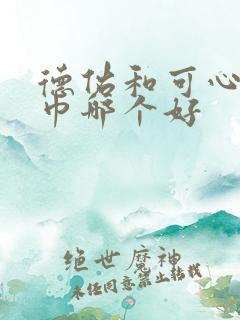 德佑和可心
巾哪个好
绝世魔神
未经同意禁止转载